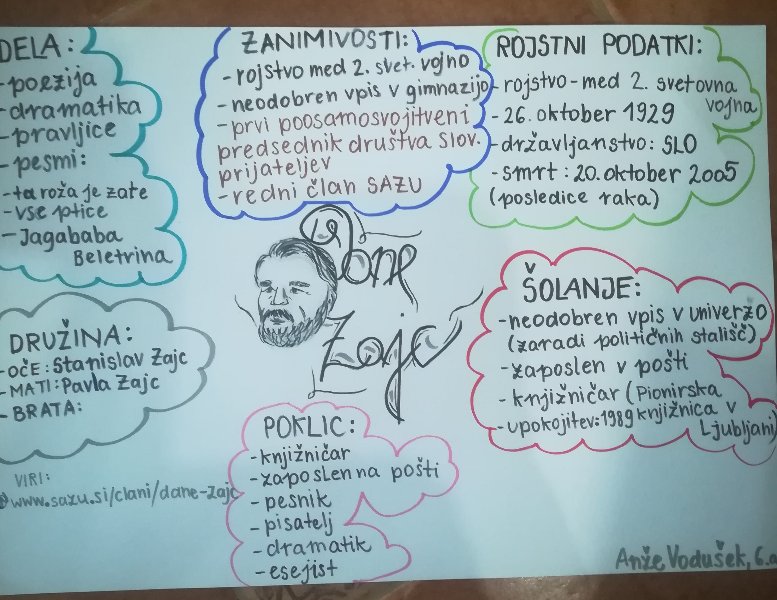 DELA:
-poezija
-dramatika
-pravljice
-pesmi:
-ta roža je zate
-vse ptice
-Jagababa
Beletrina
ZANIMIVOSTI:
-rojstvo med 2. svet. vojno
-neodobren vpis v gimnazijo
-prvi poosamosvojitveni
predsednik društva slov.
prijateljev
-redni član SAZU
ROJSTNI PODATKI:
-rojstvo-med 2. svetovna
vojna
-26. oktober 1929
-državljanstvo: SLO
-smrt: 20. oktober 2005
(posledice raka)
Dane
Zajc
DRUŽINA:
-OČE: Stanislav Zajc
-MATI: Pavla Zajc
-BRATA:
ŠOLANJE:
-neodobren vpis v univerzo
(zaradi političnih stališč)
-zaposlen v pošti
-knjižničar (Pionirska
-upokojitev: 1989 knjižnica v
Ljubljani)
POKLIC:
-knjižničar
-zaposlen na pošti
-pesnik
-pisatelj
-dramatik
-esejist
VIRI:
www.sazu.si/clani/dane-zajc
Anže Vodušek, 6.a